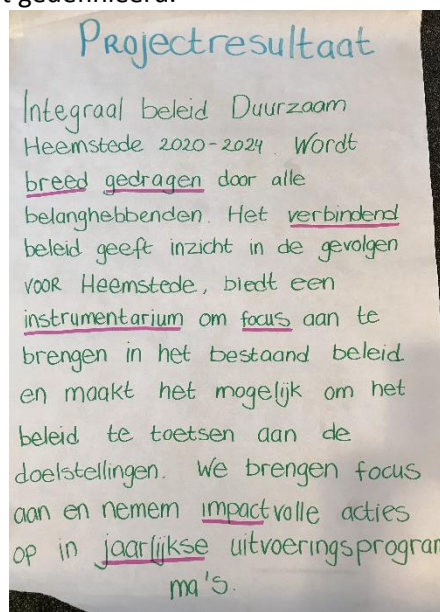 Projectresultaat
Integraal beleid Duurzaam
Heemstede 2020-2024 Wordt
breed gedragen door alle
belanghebbenden. Het verbindend
beleid geeft inzicht in de gevolgen
voor Heemstede, biedt een
instrumentarium om focus aan te
brengen in het bestaand beleid
en maakt het mogelijk om het
beleid te toetsen aan de
doelstellingen. We brengen focus
aan en nemem impactvolle acties
op in jaarlijkse uitvoeringsprogram
ma's.